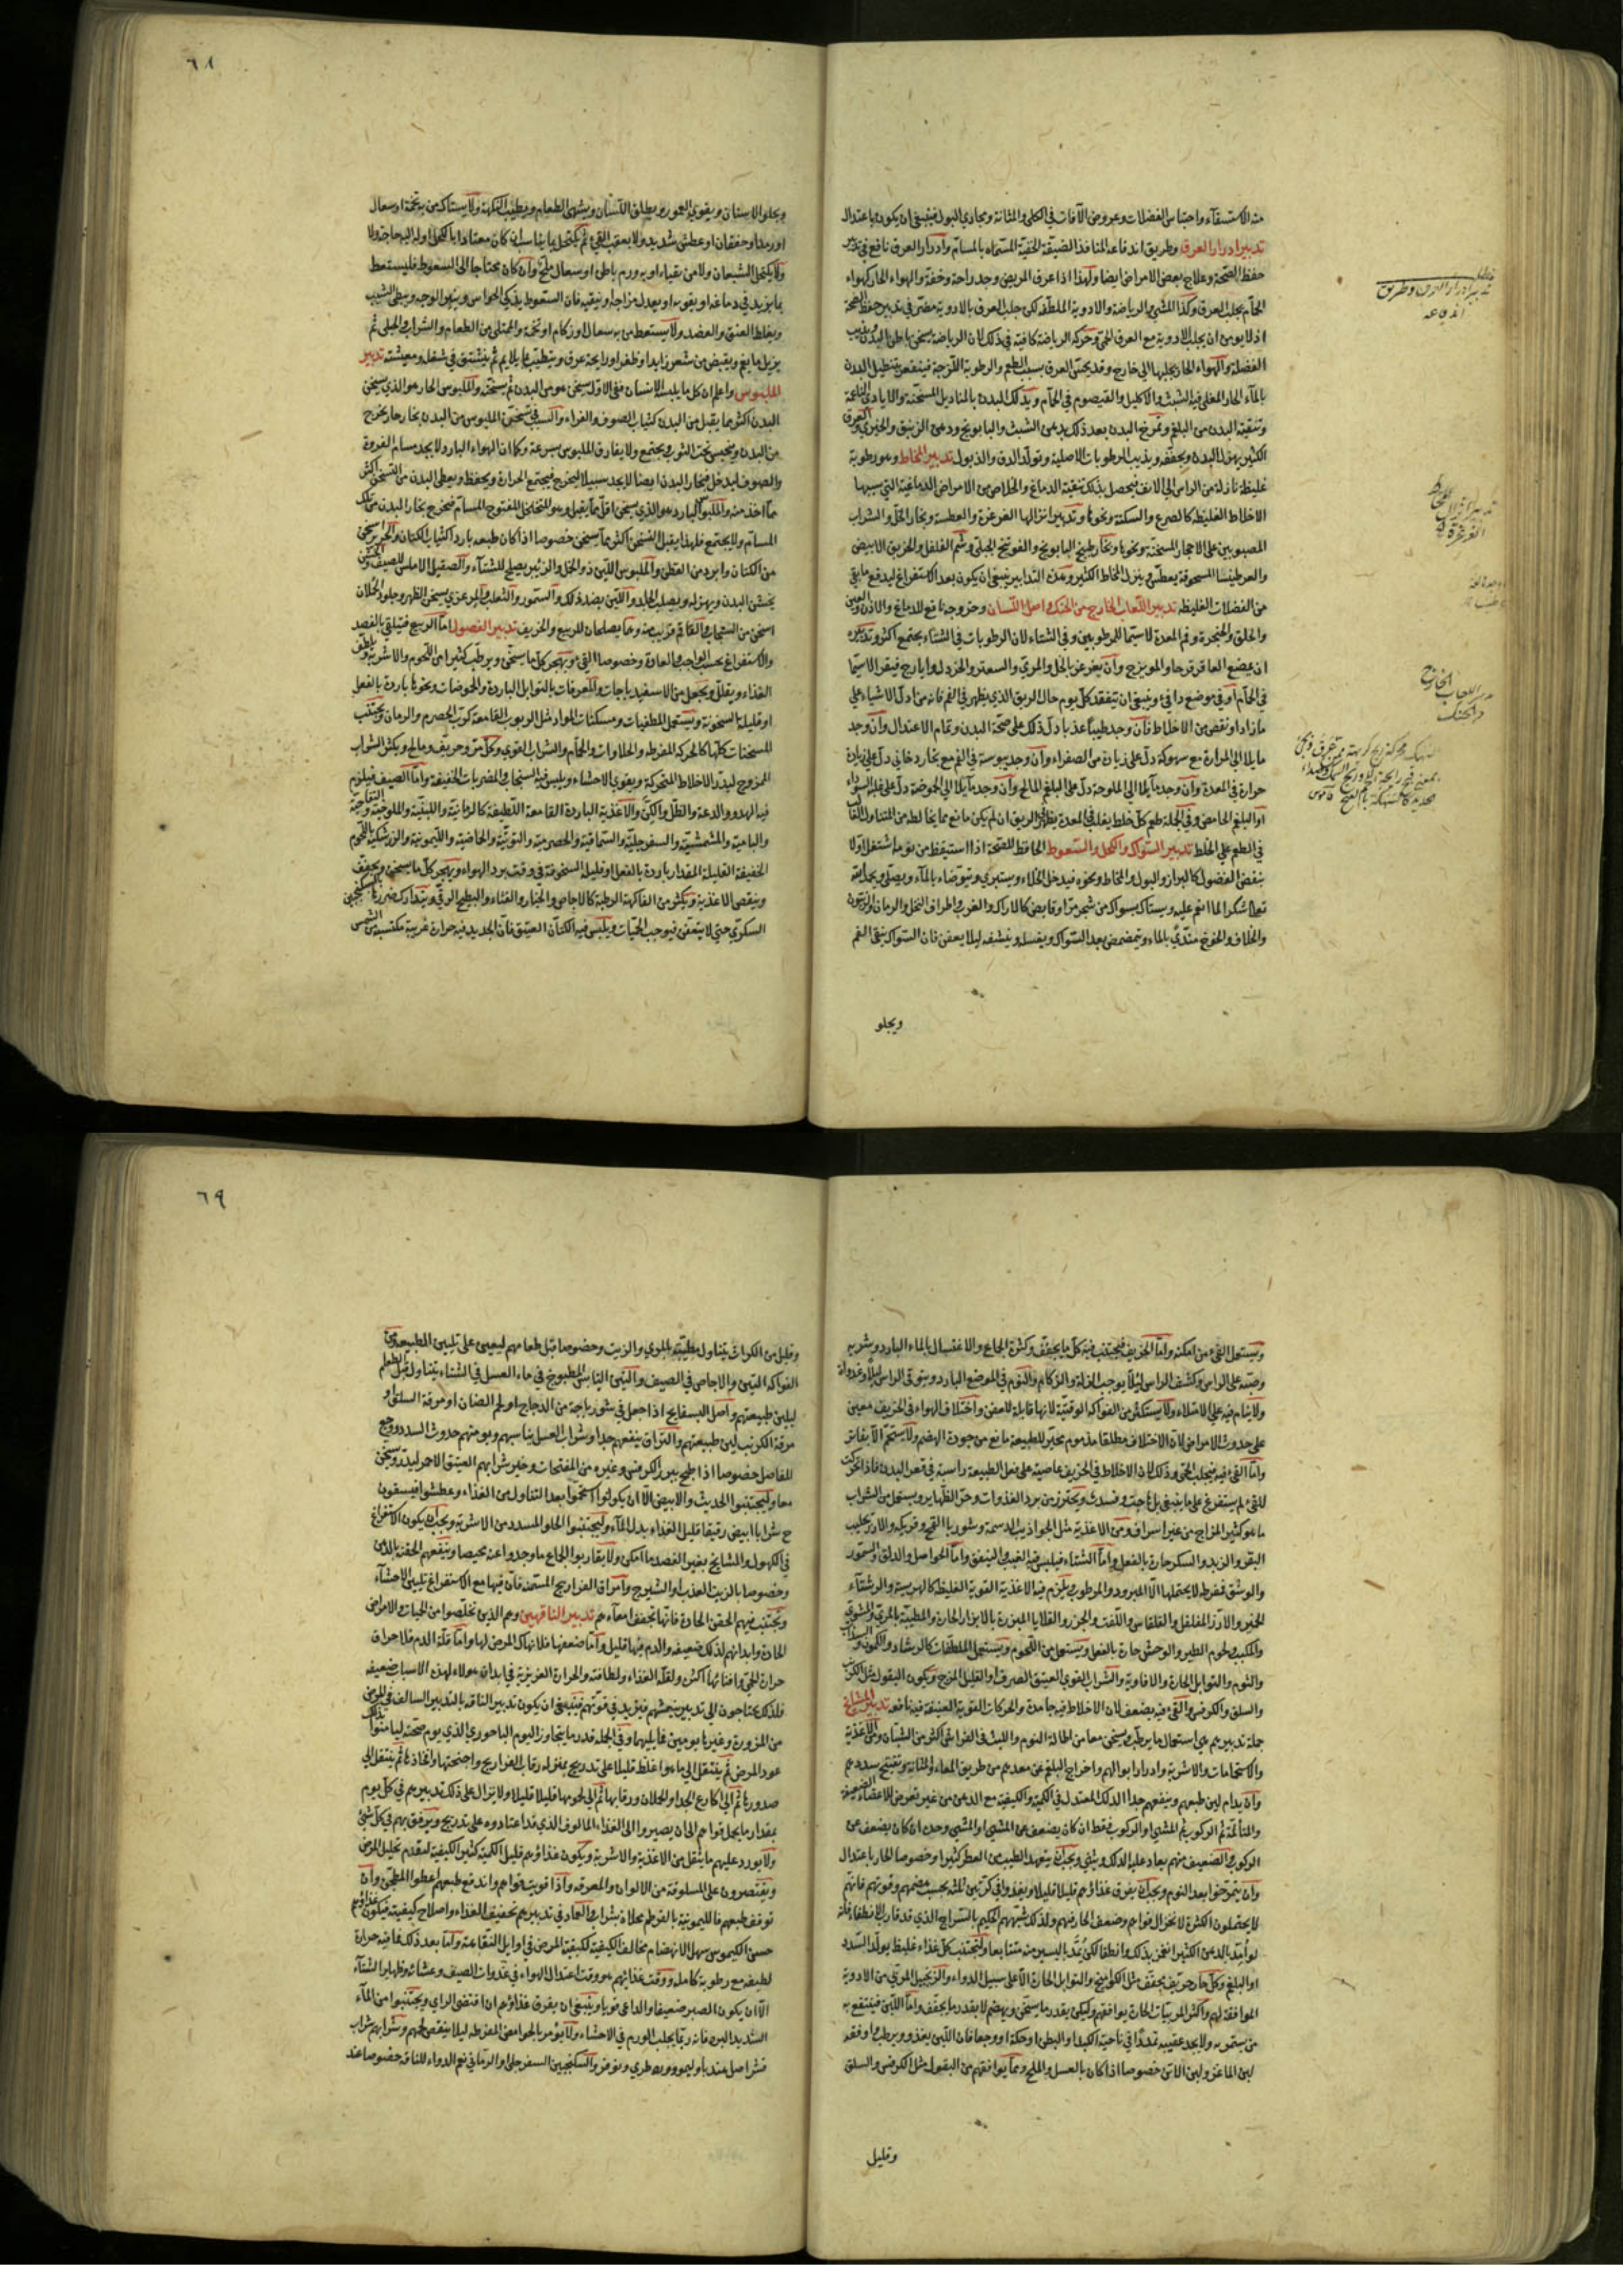 منه الاستسقاء واحتباس الفضلات وعروض الآفات في الكلى والمثانة ومجاري البول فينبغي ان يكون باعتدال
تدبير ادرار العرق وطريق اندفاعه المنافذ الضيقة الخفية المسماه بالمسام وادرار العرق نافع في تدبير
حفظ الصحة وعلاج بعض الامراض ايضا ولهذا اذا عرق المريض وجد راحة وخفة والهواء الحار كهواء
الحمام يجلب العرق وكذا المشي والرياضة والادوية الملطفه لكن جلب العرق بالادوية مضر في تدبير حفظ الصحة
اذ لا يومن ان يجلب الادوية مع العرق الحمى وحركه الرياضة كافية في ذلك لان الرياضة تسخن باطن البدن وتذيب
الفضلة والهواء الحار يجلبها الى خارج وقد يحتبس العرق بسبب البلغم والرطوبة اللزجة فينفعه تنطيل البدن
بالماء الحار المغلي فيه الشبت والاكليل والقيصوم في الحمام ويدلك البدن بالمناديل المسخنة والايادي الناعمة
وتنقية البدن من البلغم وتمريخ البدن بعد ذلك بدهن الشبت والبابونج ودهن الزنبق والخيري والعرق
الكثير يهزل البدن ويجففه ويذيب الرطوبات الاصلية ويولد الدق والذبول تدبير المخاط وهو رطوبة
غليظة نازلة من الراس الى الانف فيحصل بذلك تنقية الدماغ والخلاص من الامراض الدماغية التي سببها
الاخلاط الغليظه كالصرع والسكتة ونحوها وتدبير انزالها الغرغرة والعطسة وبخار الخل والشراب
المصبوبين على الاحجار المسخنة ونحوها وبخار طبيخ البابونج والفوتنج الجبلي وشم الفلفل والخربق الابيض
والعرطنيثا المسحوقة يعطس وينزل المخاط الكثير وهذه التدابير ينبغي ان يكون بعد الاستفراغ ليدفع ما بقي
من الفضلات الغليظه تدبير اللعاب الخارج من الحنك واصل اللسان وخروجه نافع للدماغ والاذن والعين
والحلق والحنجرة وفم المعدة لا سيما للمرطوبين وفي الشتاء لان الرطوبات في الشتاء يجتمع اكثر وتدبيره
ان يمضغ العاقر قرحا والمويزج وان يغرغر بالخل والمري والسعتر والخردل وايارج فيقرا لا سيما
في الحمام او في موضع دافئ وينبغي ان يتفقد كل يوم حال الريق الذي يظهر في الفم فانه من ادل الاشياء على
ما زاد او نقص من الاخلاط فان وجد طيبا عذبا دل ذلك على صحة البدن وتمام الاعتدال وان وجد
مايلا الى المرارة مع سهوكة دل على زيادة من الصفراء وان وجد يبوسة في الفم مع بخار دخاني دل على زيادة
حرارة في المعدة وان وجد مايلا الى الملوحة دل على البلغم المالح وان وجد مايلا الى الحموضة دل على غلبة السوداء
او البلغم الحامض وفي الجملة طعم كل خلط يغلب في المعدة يظهر في الريق ان لم يكن مانع مما يخالطه من المتناول الغالب
في الطعم على الخلط تدبير السواك والكحل والسعوط الحافظ للصحة اذا استيقظ من نومه اشتغل اولا
بنفض الفضول كالبراز والبول والمخاط ونحوه فيدخل الخلاء ويستبري ويتوضاء بالماء ويصلي ويحمد الله
تعالى شكرا لما انعم عليه ويستاك بسواك من شجر مر او قابض كالاراك والغرب واطراف النخل والرمان والزيتون
والخلاف والخوخ مندى بالماء ويتمضمض بعد السواك ويغسله وينشفه ليلا يعفن فان السواك ينقي الفم
ويجلو
تدبير ادرار العرق وطريق
اندفاعه
اللعاب الخارج
من الحنك
٦٨
ويجلو الاسنان ويقوي العمور ويطلق اللسان ويشهي الطعام ويطيب النكهة ولا يستاك من به تخمة او سعال
او رمد او خفقان او عطش شديد ولا بعقب القيء ثم يكتحل بما يناسب ان كان معتادا بالكحل او له اليه حاجة ولا
ولا يكتحل الشبعان ولا من تقياء او به ورم باطن او سعال ملح وان كان محتاجا الى السعوط فليستعط
بما يزيد في دماغه او يقويه او يعدل مزاجه وينقيه فان السعوط يذكي الحواس وينور الوجه ويبطئ الشيب
ويغلظ العنق والعضد ولا يستعط من به سعال او زكام او تخمة والممتلي من الطعام والشراب والحبلى ثم
يزيل ما يغم ويقبض من شعر زايد او ظفر او رايحة عرق ويتطيب بما يلايم ثم يشتغل في شغله ومعيشته تدبير
الملبوس واعلم ان كل ما يلبسه الانسان ففي الاول يسخن هو من البدن ثم يسخنه والملبوس الحار هو الذي يسخن
البدن اكثر مما يقبل من البدن كثياب الصوف والفراء والسبب في تسخين الملبوس من البدن بخار حار يخرج
من البدن ويحتبس تحت الثوب ويجتمع ولا يفارق الملبوس بسرعة وكما ان الهواء البارد لا يجد مسام الفروة
والصوف ليدخل فبخار البدن ايضا لا يجد سبيلا ليخرج فيجتمع الحرارة ويحفظ ويعطي البدن من التسخن اكثر
مما اخذ منه والملبوس البارد هو الذي يسخن اقل مما يقبل وهو المتخلخل المفتوح المسام فيخرج بخار البدن من تلك
المسام ولا يجتمع فلهذا يقبل التسخن اكثر مما يسخن خصوصا اذا كان طبعه باردا كثياب الكتان والحرير اسخن
من الكتان وابرد من القطن والملبوس اللين ذو الخمل والزئبر يصلح للشتاء والصقيل الاملس للصيف والخشن
يخشن البدن ويهزله ويصلب الجلد واللين بضد ذلك والسمور والثعلب والمرعزي يسخن الظهر وجلود الحملان
اسخن من السنجاب والقاقم قريب منه وهما يصلحان للربيع والخريف تدبير الفصول اما الربيع فيتلقى بالفصد
والاستفراغ بحسب الواجب والعادة وخصوصا القيء ويهجر كل ما يسخن ويرطب كثيرا من اللحوم والاشربة ويلطف
الغذاء ويقلل ويجعل من الاسفيدباجات والمعرقات بالتوابل الباردة والحموضات ونحوها باردة بالفعل
او قليلة السخونة ويستعمل المطفيات ومسكنات المواد مثل الربوب القامعة كرب الحصرم والرمان ويجتنب
المسخنات كلها كالحركه المفرطه والحلاوات والحمام والشراب القوي وكل مر وحريف ومالح ويكثر الشراب
الممزوج ليدر الاخلاط المتحركة ويقوي الاحشاء ويلبس فيه السنجاب والمضربات الخفيفة واما الصيف فيلزم
فيه الهدو والدعة والظل والكن والاغذية الباردة القامعة اللطيفة كالرمانية واللبنية والملوخية والتفاحية
والباميه والمشمشية والسفرجلية والسماقية والحصرمية والتوتية والحماضية والليمونية والزرشكية واللحوم
الخفيفة القليلة المقدار باردة بالفعل او قليلة السخونة في وقت برد الهواء ويهجر كل ما يسخن ويجفف
وينقص الاغذية ويكثر من الفاكهة الرطبة كالاجاص والخيار والقثاء والبطيخ الرقي ويتدارك ضررها بالسكنجبين
السكري حتى لا يتعفن فيوجب الحميات ويلبس فيه الكتان العتيق فان الجديد فيه حرارة غريبة مكتسبة من الشمس
ويستعمل القيء من امكنه واما الخريف فيجتنب فيه كل ما يجفف وكثرة الجماع والاغتسال بالماء البارد وشربه
وصبه على الراس وكشف الراس ليلا يوجب النزلة والزكام والنوم في الموضع البارد ويتوقى الراس ليلا وغدوة
ولا ينام فيه على الامتلاء ولا يستكثر من الفواكه الوقتية لانها قابلة للعفن واختلاف الهواء في الخريف معين
على حدوث الامراض لان الاختلاف مطلقا مذموم محير للطبيعة مانع من جودة الهضم ولا يستحم الا بفاتر
واما القيء فيه فيجلب الحمى وذلك لان الاخلاط في الخريف عاصية على فعل الطبيعة راسبة في قعر البدن فاذا تحركت
للقيء لم يستفرغ على ما ينبغي بل هاجت وفسدت ويحترز من برد الغدوات وحر الظهاير ويستعمل من الشراب
ما هو كثير المزاج من غير اسراف ومن الاغذية مثل الجواذيب الدسمة وشوربا القمح وفريكه والارز بحليب
البقر والزبد والسكر حارة بالفعل واما الشتاء فيلبس فيه القبي المنفق واما الحواصل والدلق والسمور
والوشق فمفرط لا يحتملها الا المبرود والمرطوب ويلزم فيه الاغذية القوية الغليظة كالهريسة والرشتاء
الخمير والارز المفلفل والقلقاس واللفت والجزر والقلايا المبزرة بالابزار الحارة والمطيبة بالمري والمشوي
والمكبب ولحوم الطير والوحش حارة بالفعل ويستعمل من اللحوم ويستعمل الملطفات كالرشاد والكمون والسذاب
والثوم والتوابل الحارة والافاويه والشراب القوي العتيق الصرف او القليل المزج ويكون البقول مثل الكرنب
والسلق والكرفس والقيء فيه يضعف لان الاخلاط فيه جامدة والحركات القوية العنيفة فيه نافعه تدبير المشايخ
جملة تدبيرهم هي استعمال ما يرطب ويسخن معا من اطالة النوم واللبث في الفراش اكثر من الشبان ومن الاغذية
والاستحمامات والاشربة وادرار ابوالهم واخراج البلغم عن معدهم من طريق المعاء والمثانة ويفتح سددهم
وان يدام لين طبعهم وينفعهم جدا الدلك المعتدل في الكمية والكيفية مع الدهن من غير تعرض للاعضاء الضعيفة
والمتالمة ثم الركوب ثم المشي او الركوب فقط ان كان يضعف عن المشي او المشي وحده ان كان يضعف عن
الركوب والضعيف منهم يعاد عليه الدلك ويثنى ويجب ان يتعهد الطيب من العطر كثيرا وخصوصا الحار باعتدال
وان يتمرخوا بعد النوم ويجب ان يفرق غذاؤهم قليلا قليلا ويغذوا في كرتين او ثلثه بحسب هضمهم وقوتهم فانهم
لا يحتملون الكثرة لانخزال قواهم وضعف الحار فيهم ولذلك شبههم الحكيم بالسراج الذي قد قارب الانطفاء فانه
لو امد بالدهن الكثير انغمر بذلك وانطفا لكن يمد باليسير منه متتابعا وليجتنب كل غذاء غليظ يولد السدد
او البلغم وكل حار حريف يجفف مثل الكواميخ والتوابل الحارة الا على سبيل الدواء والزنجبيل المربى من الادوية
الموافقة لهم واكثر المربيات الحارة يوافقهم وليكن بقدر ما يسخن ويهضم لا بقدر ما يجفف واما اللبن فينتفع به
من يستمريه ولا يجد عقيبه تمددا في ناحية الكبد او البطن او حكة او وجعا فان اللبن يغذو ويرطب واوفقه
لبن الماعز ولبن الاتن خصوصا اذا كان بالعسل والملح ومما يوافقهم من البقول مثل الكرفس والسلق
وقليل
٦٩
وقليل من الكراث يتناول مطيبة بالمري والزيت وخصوصا قبل طعامهم ليعين على تليين الطبيعة ومن
الفواكه التين والاجاص في الصيف والتين اليابس المطبوخ في ماء العسل في الشتاء يتناول قبل الطعام
ليلين طبيعتهم واصل البسفايج اذا جعل في شورباجة من الدجاج او لحم الضان او مرقة السلق او
مرقة الكرنب لين طبيعتهم والترياق ينفعهم جدا وشراب العسل يناسبهم ويومنهم حدوث السدد ووجع
المفاصل خصوصا اذا طبخ ببزر الكرفس وغيره من المفتحات وخير شرابهم العتيق الاحمر ليدر ويسخن
معا وليجتنبوا الحديث والابيض الا ان يكونوا استحموا بعد التناول من الغذاء وعطشوا فيسقون
ح شرابا ابيض رقيقا قليل الغذاء بدل الماء وليجتنبوا الحلو المسدد من الاشربة ويجب ان يكون الاستفراغ
في الكهول والمشايخ بغير الفصد ما امكن ولا يقاربوا الجماع ما وجدوا عنه محيصا وينفعهم الحقنة بالدهن
وخصوصا بالزيت العذب والشيرج وامراق الفراريج المسمنة فان فيها مع الاستفراغ تليين الاحشاء
ويجتنب فيهم الحقن الحادة فانها تجفف امعاءهم تدبير الناقهين وهم الذين تخلصوا من الحميات والامراض
الحادة وابدانهم لذلك ضعيفه والدم فيها قليل واما ضعفها فلانهاك المرض لها واما قلة الدم فلاحراق
حرارة الحمى وافنائها اكثره ولقلة الغذاء ولطافته والحرارة الغريزية في ابدان هولاء لهذه الاسباب ضعيفه
فلذلك يحتاجون الى تدبير ينعشهم فيزيد في قوتهم فينبغي ان يكون تدبير الناقه بالتدبير السالف في المرض
من المزورة وغيرها يومين فما يليهما وفي الجملة قدر ما يتجاوز اليوم الباحوري الذي يوم صحته ليامنوا بذلك
عود المرض ثم ينتقل الى ما هو اغلظ قليلا على تدريج بمنزله رقاب الفراريج واجنحتها وافخاذها ثم ينتقل الى
صدورها ثم الى اكارع الجدا والحملان ورقابها ثم الى لحومها قليلا قليلا ولا يزال على ذلك تدبيرهم في كل يوم
بمقدار ما يحمل قواهم الى ان يصيروا الى الغذاء المالوف الذي قد اعتادوه على تدريج ويرفق بهم في كل شيء
ولا يورد عليهم ما يثقل من الاغذية والاشربة ويكون غذاؤهم قليل الكمية كثير الكيفية لتقدم تحليل المرض
ويقتصرون على المسلوقة من الالوان والمعرقه واذا قويت قواهم واندفع طبعهم اعطوا المطجن وان
توقف طبعهم فالليمونية بالقرطم محلاة بشراب والعماد في تدبيرهم تخفيف الغذاء واصلاح كيفيته فيكون غذاؤهم
حسن الكيموس سهل الانهضام مخالف الكيفية لكيفية المرض في اوايل النقاهة واما بعد ذلك فما فيه حرارة
لطيفه مع رطوبة كامله ووقت غذائهم هو وقت اعتدال الهواء في غدوات الصيف وعشياته وظهاير الشتاء
الا ان يكون الصبر ضعيفا والداعي قويا وينبغي ان يفرق غذاؤهم ان اقتضى الراي ويجتنبوا من الماء
الشديد البرد فانه ربما يجلب الورم في الاحشاء ولا يؤمر بالحوامض المفرطه ليلا ينقص لحمهم وشرابهم شراب
والسكنجبين السفرجلي او الرماني نعم الدواء للناقه خصوصا عند